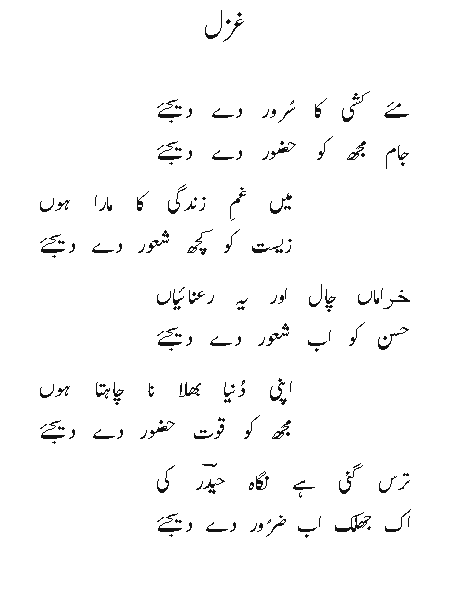 غزل
مئے کشی کا سُرور دے دیجئے
جام مجھ کو حضور دے دیجئے
میں غمِ زندگی کا مارا ہوں
زیست کو کچھ شعور دے دیجئے
خراماں چال اور یہ رعنائیاں
حسن کو اب شعور دے دیجئے
اپنی دُنیا بھلا نا چاہتا ہوں
مجھ کو قوت حضور دے دیجئے
ترس گئی ہے نگاہ حیدؔر کی
اک جھلک اب ضرُور دے دیجئے